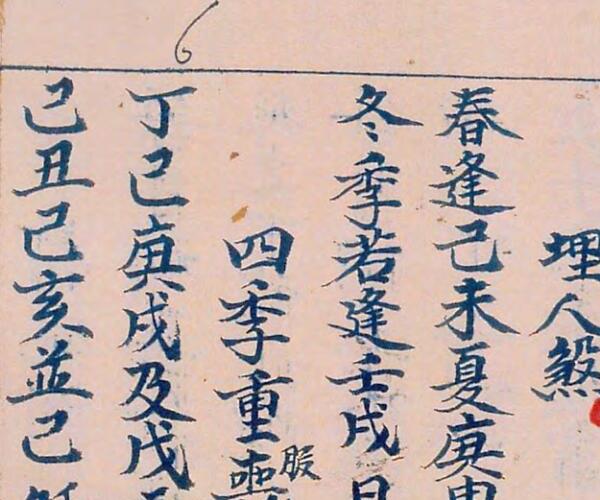 埋人煞
春逢己未夏庚申
冬季若逢壬戌日
四季重喪煞
丁巳庚戌及戊
己丑己亥並己